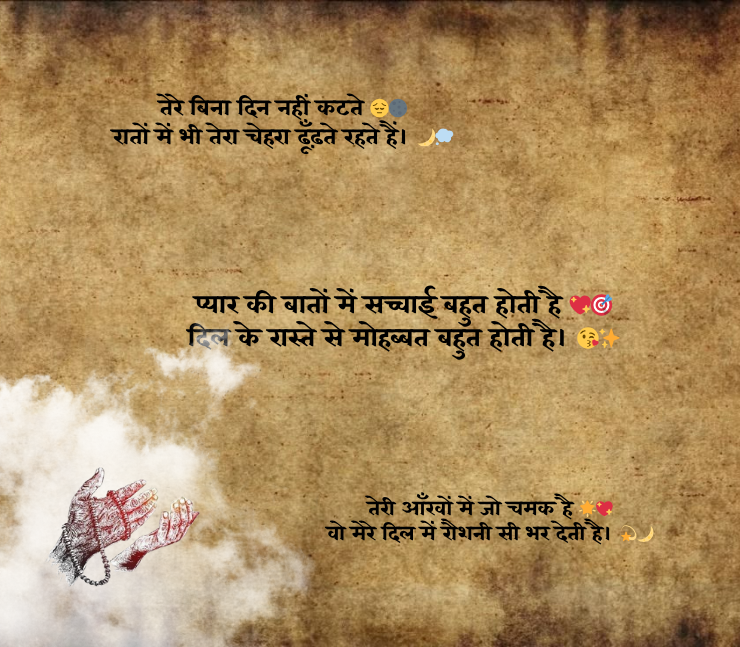 तेरे बिना दिन नहीं कटते 😔🌚
रातों में भी तेरा चेहरा ढूँढ़ते रहते हैं। 🌙💭
प्यार की बातों में सच्चाई बहुत होती है 💖🎯
दिल के रास्ते से मोहब्बत बहुत होती है। 😘✨
तेरी आँखों में जो चमक है 🌟💖
वो मेरे दिल में रौशनी सी भर देती है। 💫🌙